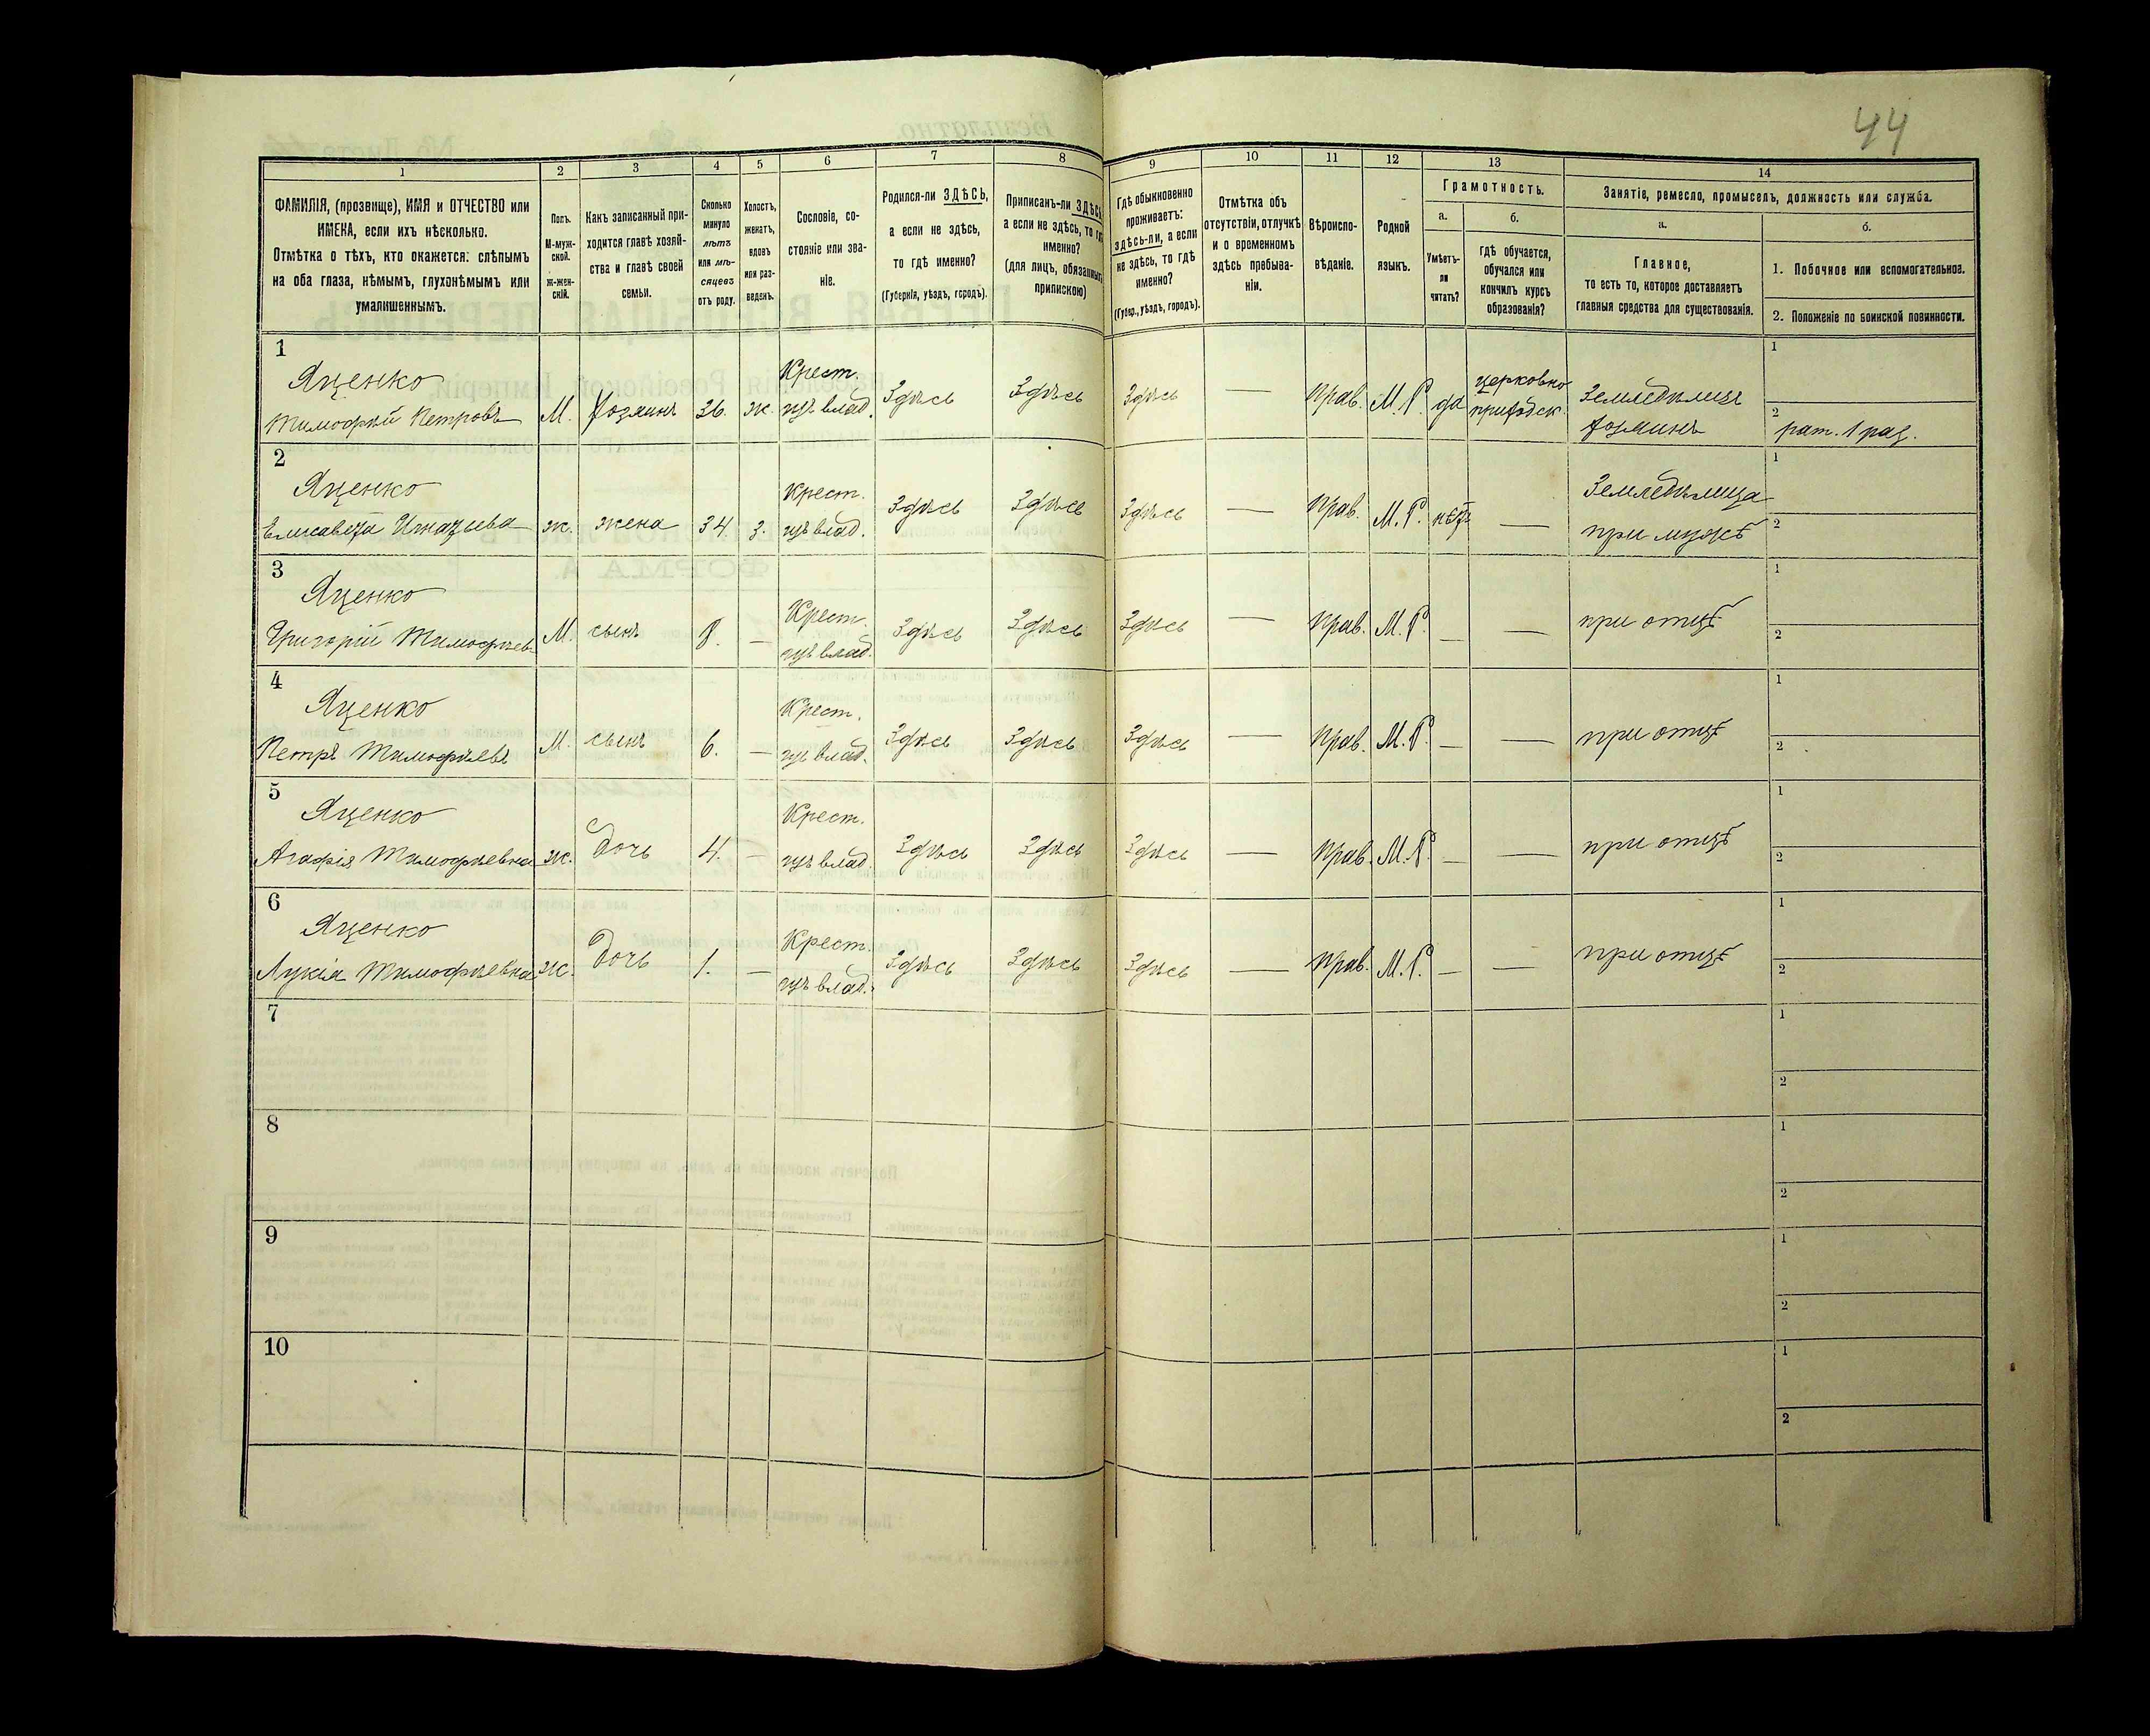 44
1
2
3
4
5
6
7
8
9
10
11
12
13
14
ФАМИЛІЯ, (прозвище), ИМЯ и ОТЧЕСТВО или
ИМЕНА, если ихъ нѣсколько.
Отмѣтка о тѣхъ, кто окажется: слѣпымъ
на оба глаза, нѣмымъ, глухонѣмымъ или
умалишеннымъ.
Полъ.
М-муж-
ской.
ж-жен-
скій.
Какъ записанный при-
ходится главѣ хозяй-
ства и главѣ своей
семьи.
Сколько
минуло
лѣтъ
или мѣ-
сяцевъ
отъ роду.
Холостъ,
женатъ,
вдовъ
или раз-
веденъ.
Сословіе, со-
стояніе или зва-
ніе.
Родился-ли ЗДѢСЬ,
а если не здѣсь,
то гдѣ именно?
(Губернія, уѣздъ, городъ).
Приписанъ-ли ЗДѢСЬ
а если не здѣсь, то гдѣ
именно?
(для лицъ, обязанныхъ
припискою)
Гдѣ обыкновенно
проживаетъ:
здѣсь-ли, а если
не здѣсь, то гдѣ
именно?
(Губер., уѣздъ, городъ).
Отмѣтка объ
отсутствіи, отлучкѣ
и о временномъ
здѣсь пребыва-
ніи.
Вѣроиспо-
вѣданіе.
Родной
языкъ.
Грамотность.
а.
Умѣетъ-
ли
читать?
б.
гдѣ обучается,
обучался или
кончилъ курсъ
образованія?
Занятіе, ремесло, промыселъ, должность или служба.
а.
Главное,
то есть то, которое доставляетъ
главныя средства для существованія.
б.
1. Побочное или вспомогательное.
2. Положеніе по воинской повинности.
1
Яценко
Тимофѣй Петровъ
М.
Хозяинъ
36.
ж.
Крест.
изъ влад.
Здѣсь
Здѣсь
Здѣсь
—
Прав.
М.Р.
да
церковно
приходск.
Земледѣлецъ
хозяинъ
1
2
рат. 1 раз.
2
Яценко
Елисавета Игнатьева
ж.
жена
34
з.
Крест.
изъ влад.
Здѣсь
Здѣсь
Здѣсь
—
Прав.
М.Р.
нѣтъ
—
Земледѣлица
при мужѣ
1
2
3
Яценко
Григорій Тимофѣев.
М.
сынъ
8.
—
Крест.
изъ влад.
Здѣсь
Здѣсь
Здѣсь
—
Прав.
М.Р.
—
—
при отцѣ
1
2
4
Яценко
Петръ Тимофѣевъ
М.
сынъ
6.
—
Крест.
изъ влад.
Здѣсь
Здѣсь
Здѣсь
—
Прав.
М.Р.
—
—
при отцѣ
1
2
5
Яценко
Агафія Тимофѣевна
ж.
дочь
4.
—
Крест.
изъ влад.
Здѣсь
Здѣсь
Здѣсь
—
Прав.
М.Р.
—
—
при отцѣ
1
2
6
Яценко
Лукія Тимофѣевна
ж.
дочь
1.
—
Крест.
изъ влад.
Здѣсь
Здѣсь
Здѣсь
—
Прав.
М.Р.
—
—
при отцѣ
1
2
7
1
2
8
1
2
9
1
2
10
1
2